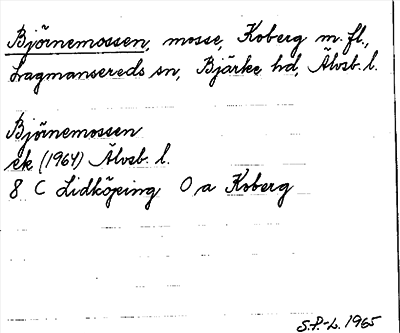 Björnemossen, mosse, Koberg m. fl.,
Lagmansereds sn, Bjärke hd, Älvsb. l.
Björnemossen
ek (1964) Älvsb. l.
8 C Lidköping O a Koberg
S.P.-L. 1965